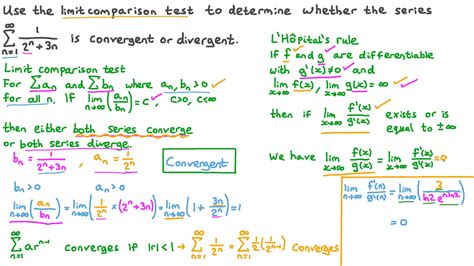 Use the limit comparison test to determine whether the series
∑_{n=1}^{∞} 1/(2^n+3n) is convergent or divergent.
Limit comparison test
For ∑a_n and ∑b_n where a_n, b_n > 0
for all n. If lim_{n→∞} (a_n/b_n) = c ✓ c>0, c<∞
then either both series converge
or both series diverge.
b_n = 1/(2^n+3n), a_n = 1/2^n
Convergent
b_n > 0
lim_{n→∞} (a_n/b_n) = lim_{n→∞} (1/2^n × (2^n+3n)) = lim_{n→∞} (1 + 3n/2^n) = 1
∑_{n=1}^{∞} ar^{n-1} converges if |r| < 1 → ∑_{n=1}^{∞} 1/2^n = ∑_{n=1}^{∞} 1/2 (1/2^{n-1}) Converges
L'Hôpital's rule
If f and g are differentiable
with g'(x) ≠ 0 ✓ and
lim_{x→∞} f(x), lim_{x→∞} g(x) = ∞ ✓
then if lim_{x→∞} f'(x)/g'(x) exists or is
equal to ±∞
We have lim_{x→∞} f(x)/g(x) = lim_{x→∞} f'(x)/g'(x) = 0
lim_{n→∞} f'(n)/g'(n) = lim_{n→∞} (3/(ln2 e^{n ln2}))
= 0